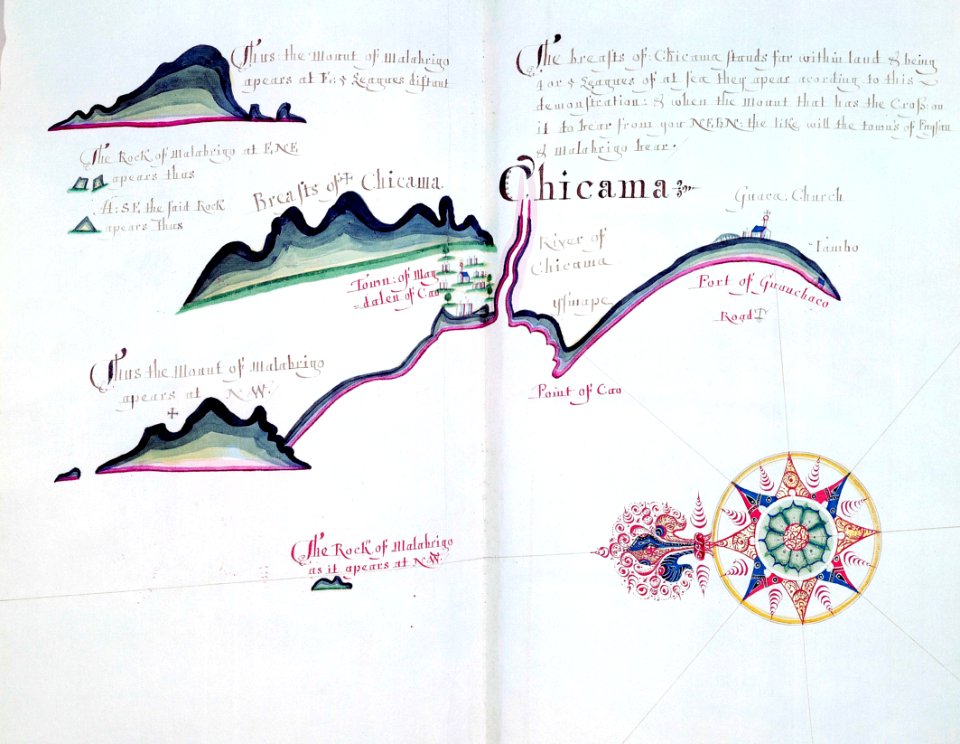 Thus: the Mount of Malabrigo
apears at E: 5 Leagues distant
The breasts of: Chicama stands far within land & being
4 or 5 Leagues of at sea they apear acording to this
demonstration: & when the mount that has the Cross: on
it to bear from you NEbN: the like will the towns of Paysan
& Malabrigo bear.
The Rock of Malabrigo at ENE
apears thus
At: SE the said Rock
apears thus
Breasts of Chicama
Chicama
Guaca Church
River of
Chicama
Tambo
Town: of Mag
=dalen of Cao
Port of Guanchaco
Road
ysinape
Point of Cao
Thus the Mount of Malabrigo
apears at NW:
The Rock of Malabrigo
as it apears at NW